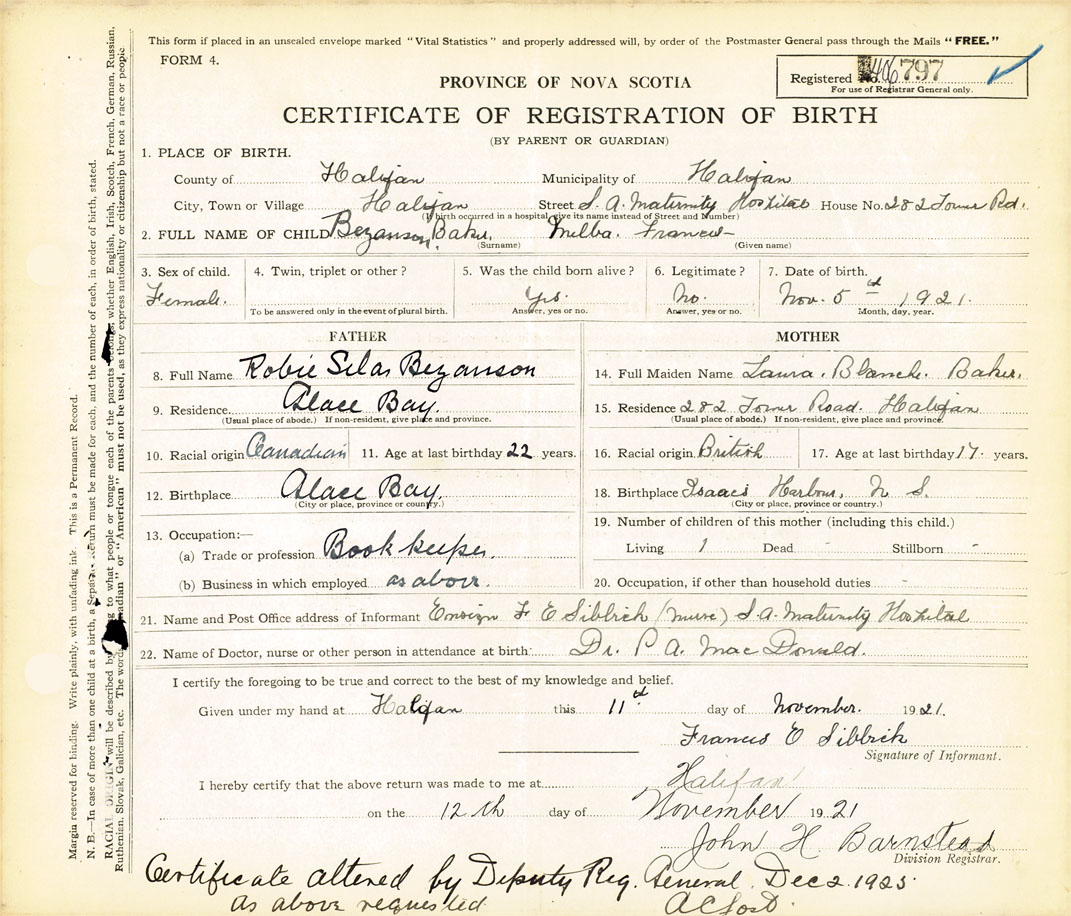 This form if placed in an unsealed envelope marked "Vital Statistics" and properly addressed will, by order of the Postmaster General pass through the Mails "FREE."
FORM 4.
Registered No. 797
For use of Registrar General only.
PROVINCE OF NOVA SCOTIA
CERTIFICATE OF REGISTRATION OF BIRTH
(BY PARENT OR GUARDIAN)
1. PLACE OF BIRTH.
County of Halifax Municipality of Halifax
City, Town or Village Halifax Street S. A. Maternity Hospital House No. 282 Tower Rd.
(If birth occurred in a hospital, give its name instead of Street and Number)
2. FULL NAME OF CHILD Bezanson, Baker, Melba. Frances
(Surname) (Given name)
3. Sex of child. 4. Twin, triplet or other? 5. Was the child born alive? 6. Legitimate? 7. Date of birth.
Female. Yes. No. Nov. 5th 1921.
To be answered only in the event of plural birth. Answer, yes or no. Answer, yes or no. Month, day, year.
FATHER
8. Full Name Robie Silas Bezanson
9. Residence Glace Bay.
(Usual place of abode.) If non-resident, give place and province.
10. Racial origin Canadian 11. Age at last birthday 22 years.
12. Birthplace Glace Bay.
(City or place, province or country.)
13. Occupation:—
(a) Trade or profession Book keeper.
(b) Business in which employed as above.
MOTHER
14. Full Maiden Name Laura. Blanche. Baker.
15. Residence 282 Tower Road. Halifax
(Usual place of abode.) If non-resident, give place and province.
16. Racial origin British 17. Age at last birthday 17. years.
18. Birthplace Isaacs Harbour, N S.
(City or place, province or country.)
19. Number of children of this mother (including this child.)
Living 1 Dead - Stillborn -
20. Occupation, if other than household duties -
21. Name and Post Office address of Informant Ensign F E Sibbick (Nurse) S.A. Maternity Hospital
22. Name of Doctor, nurse or other person in attendance at birth: Dr. P A. MacDonald.
I certify the foregoing to be true and correct to the best of my knowledge and belief.
Given under my hand at Halifax this 11th day of November. 1921.
Frances E Sibbick
Signature of Informant.
I hereby certify that the above return was made to me at Halifax
on the 12th day of November 1921
John H Barnstead
Division Registrar.
Certificate altered by Deputy Reg. General. Dec 2. 1925
as above requested
Margin reserved for binding. Write plainly, with unfading ink. This is a Permanent Record.
N. B.—In case of more than one child at a birth, a Separate Return must be made for each, and the number of each, in order of birth, stated.
RACIAL ORIGIN will be described by to what people or tongue each of the parents belongs, whether English, Irish, Scotch, French, German, Russian,
Ruthenian, Slovak, Galician, etc. The word "Canadian" or "American" must not be used, as they express nationality or citizenship but not a race or people.